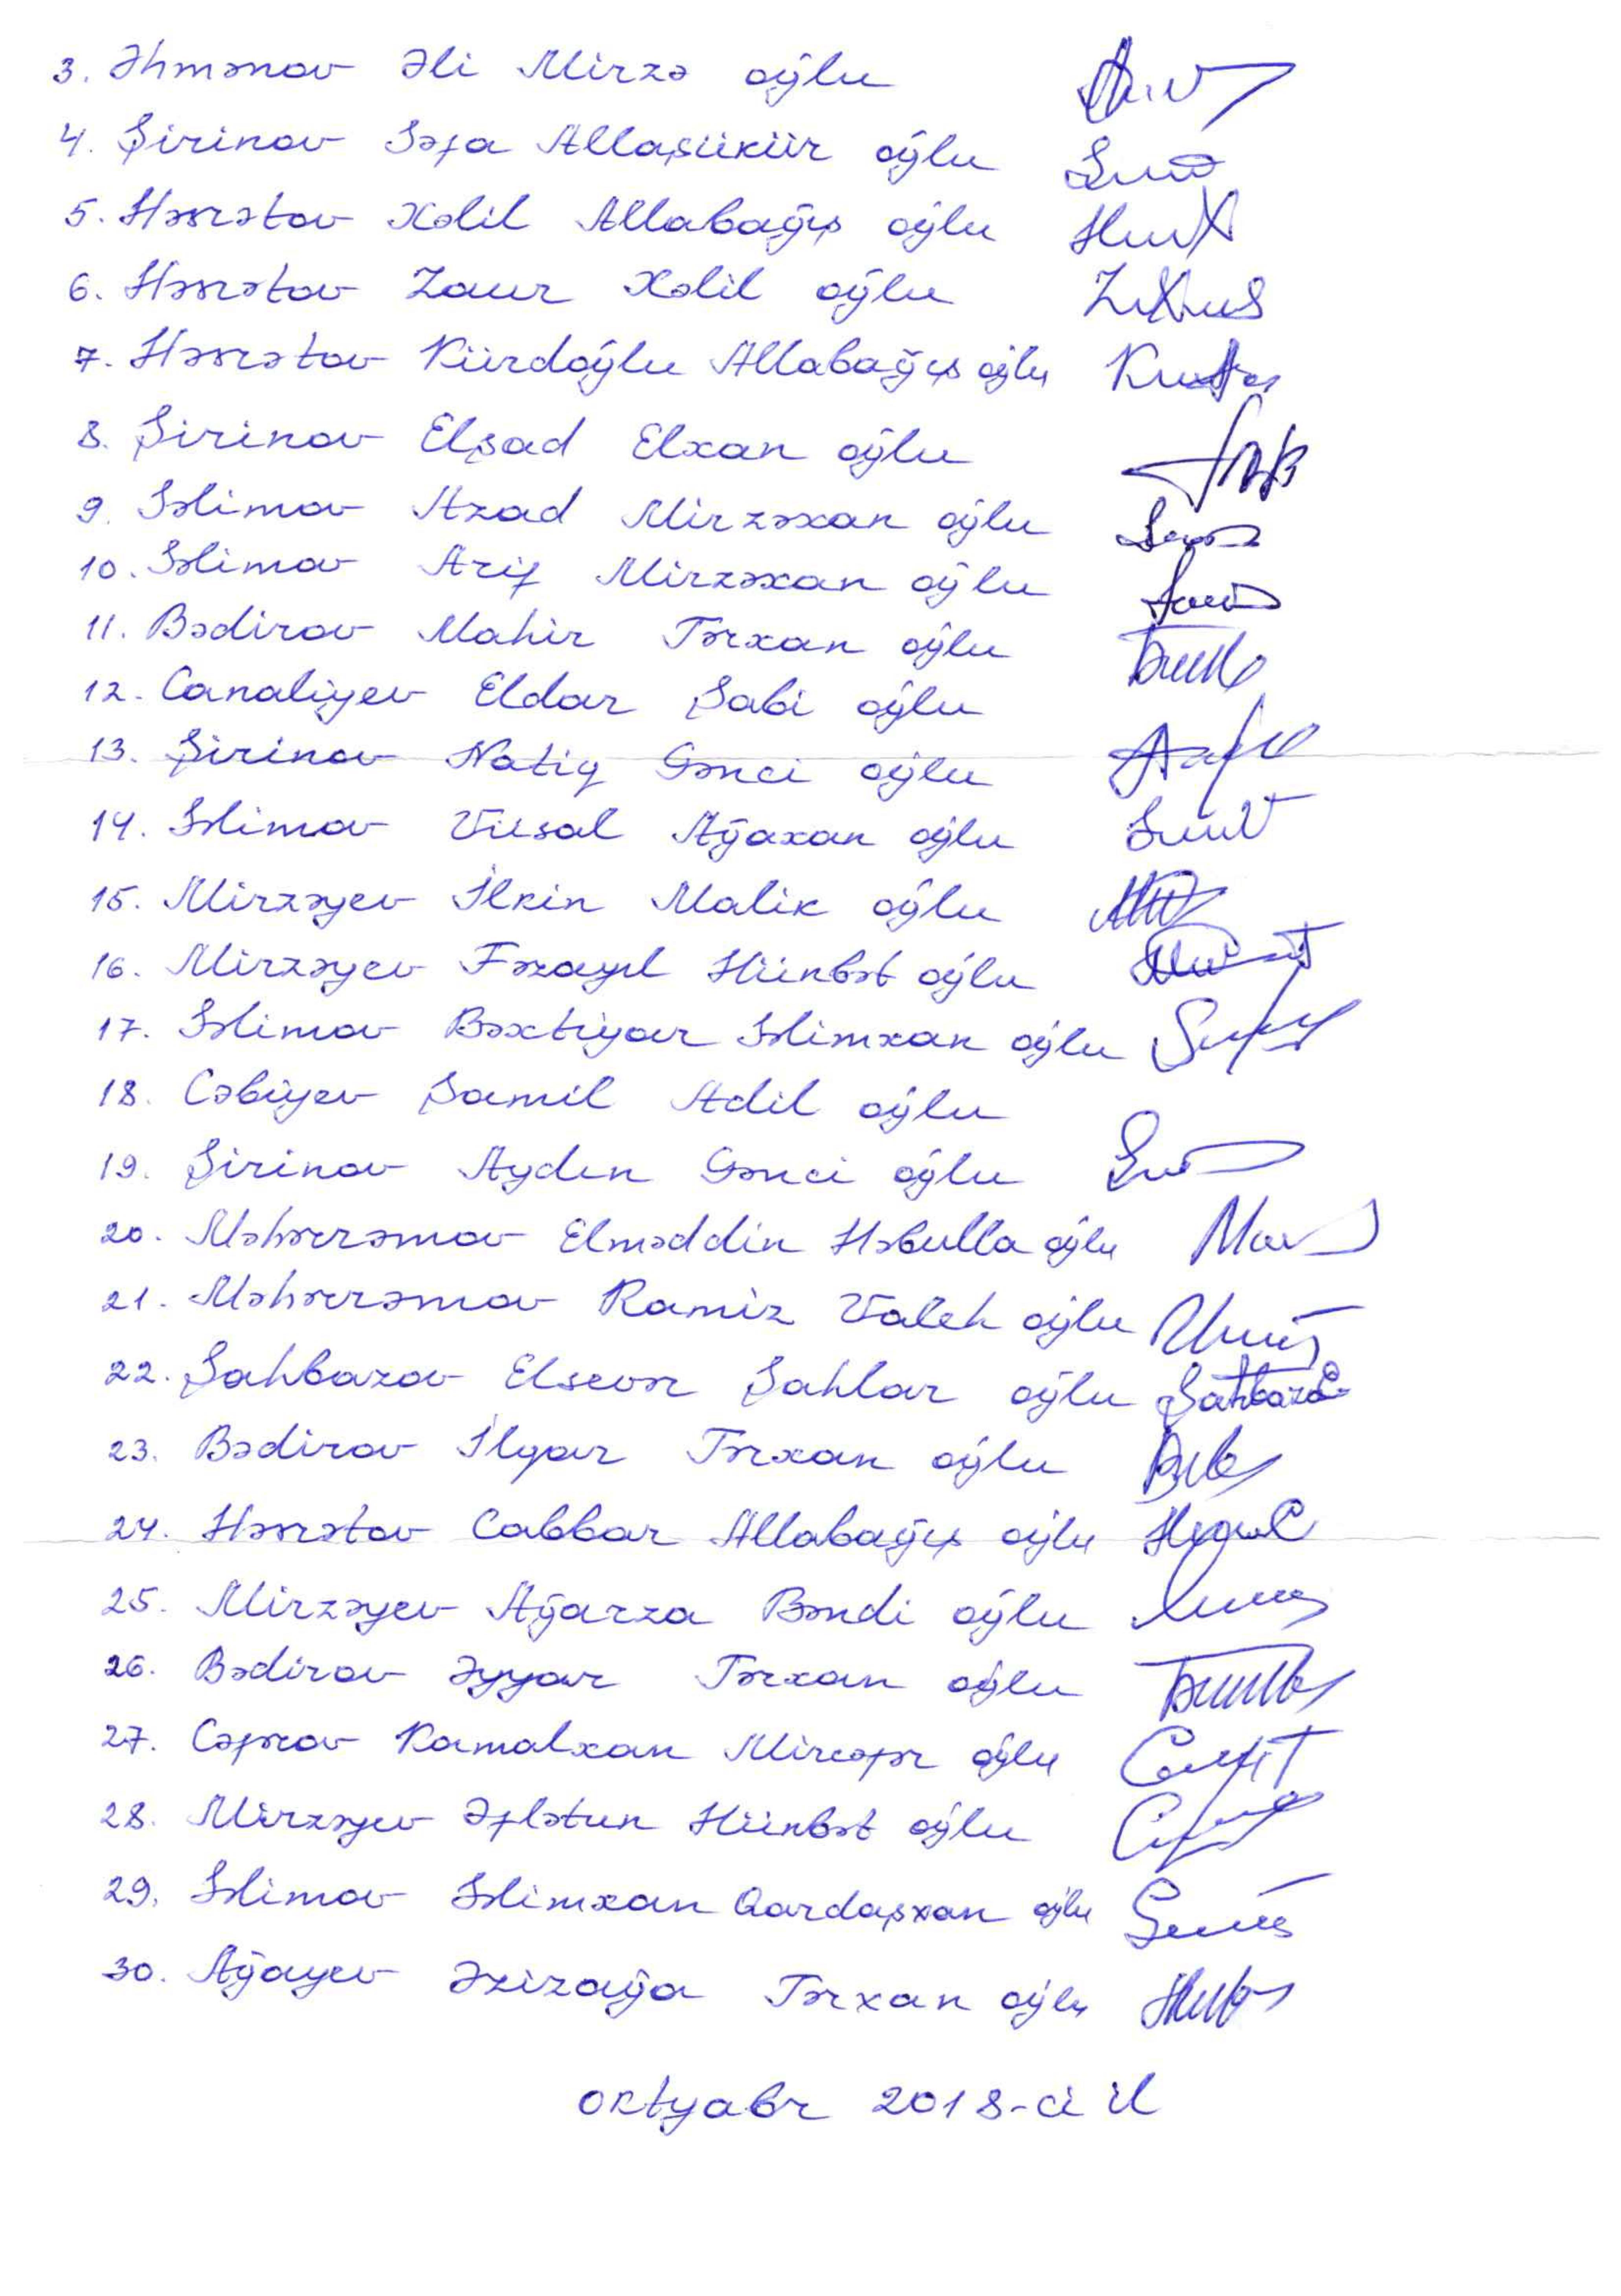 3. Əhmənov Əli Mirzə oğlu
4. Şirinov Səfa Allaşükür oğlu
5. Həsrətov Xəlil Allabağış oğlu
6. Həsrətov Zaur Xəlil oğlu
7. Həsrətov Kürdoğlu Allabağış oğlu
8. Şirinov Elşad Elxan oğlu
9. Səlimov Azad Mirzəxan oğlu
10. Səlimov Arif Mirzəxan oğlu
11. Bədirov Mahir Tərxan oğlu
12. Canaliyev Eldar Şabi oğlu
13. Şirinov Natiq Gənci oğlu
14. Səlimov Vüsal Ağaxan oğlu
15. Mirzəyev İlkin Malik oğlu
16. Mirzəyev Fəzayıl Hünbət oğlu
17. Səlimov Bəxtiyar Səlimxan oğlu
18. Cəbiyev Şamil Adil oğlu
19. Şirinov Aydın Gənci oğlu
20. Məhərrəmov Elməddin Həbulla oğlu
21. Məhərrəmov Ramiz Valeh oğlu
22. Şahbazov Elsevər Şahlar oğlu Şahbazov
23. Bədirov İlqar Tərxan oğlu
24. Həsrətov Cabbar Allabağış oğlu
25. Mirzəyev Ağarza Bəndi oğlu
26. Bədirov Əyyar Tərxan oğlu
27. Cəfərov Kamalxan Mircəfər oğlu
28. Mirzəyev Əflatun Hünbət oğlu
29. Səlimov Səlimxan Qardaşxan oğlu
30. Ağayev Əzizağa Tərxan oğlu
oktyabr 2018-ci il